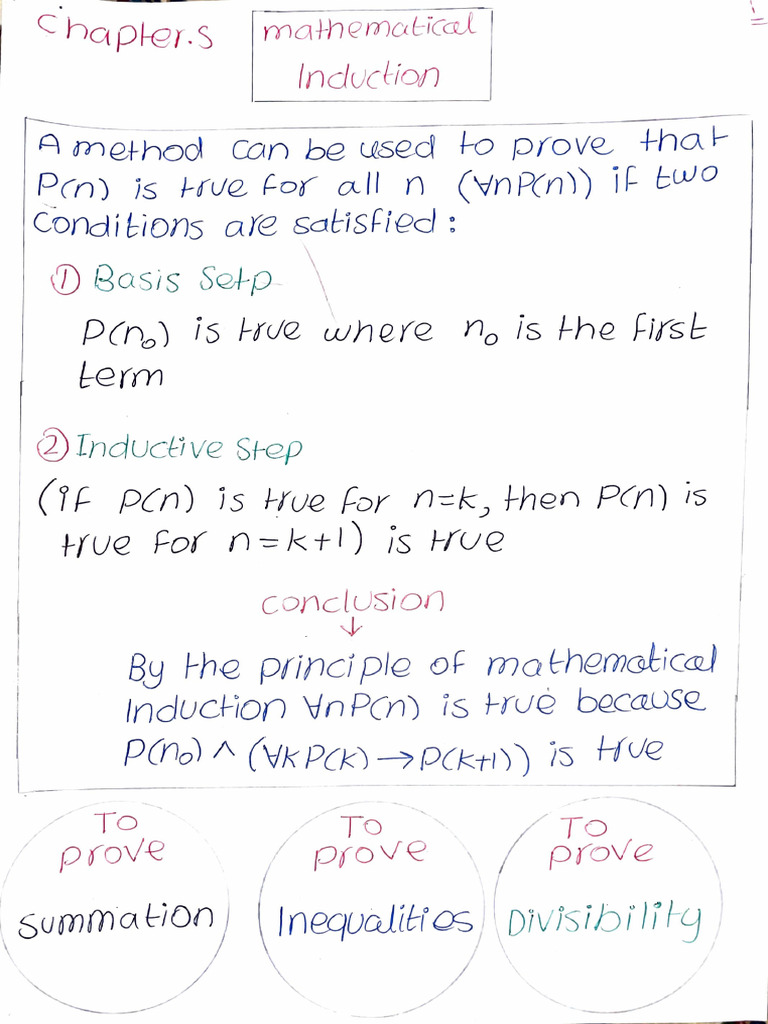 Chapter.5
mathematical
Induction
A method can be used to prove that
P(n) is true for all n (∀nP(n)) if two
Conditions are satisfied:
① Basis Setp
P(n₀) is true where n₀ is the first
term
② Inductive Step
(if P(n) is true for n=k, then P(n) is
true for n=k+1) is true
conclusion
↓
By the principle of mathematical
Induction ∀nP(n) is true because
P(n₀) ∧ (∀kP(k)→P(k+1)) is true
To
prove
Summation
To
prove
Inequalities
To
prove
Divisibility